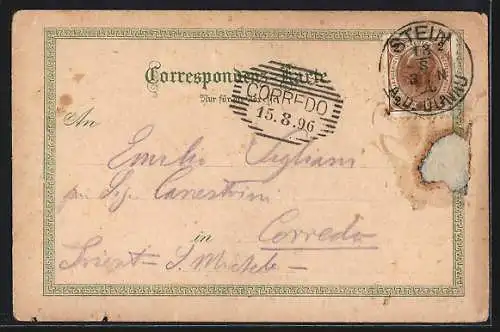 Correspondenz-Karte
Nur für die Adresse
STEIN
A.D. DONAU
CORREDO
15.8.96
An
Emilio Sigliani
per Sig. Canestrini
in Corredo
Trient - S. Michele -